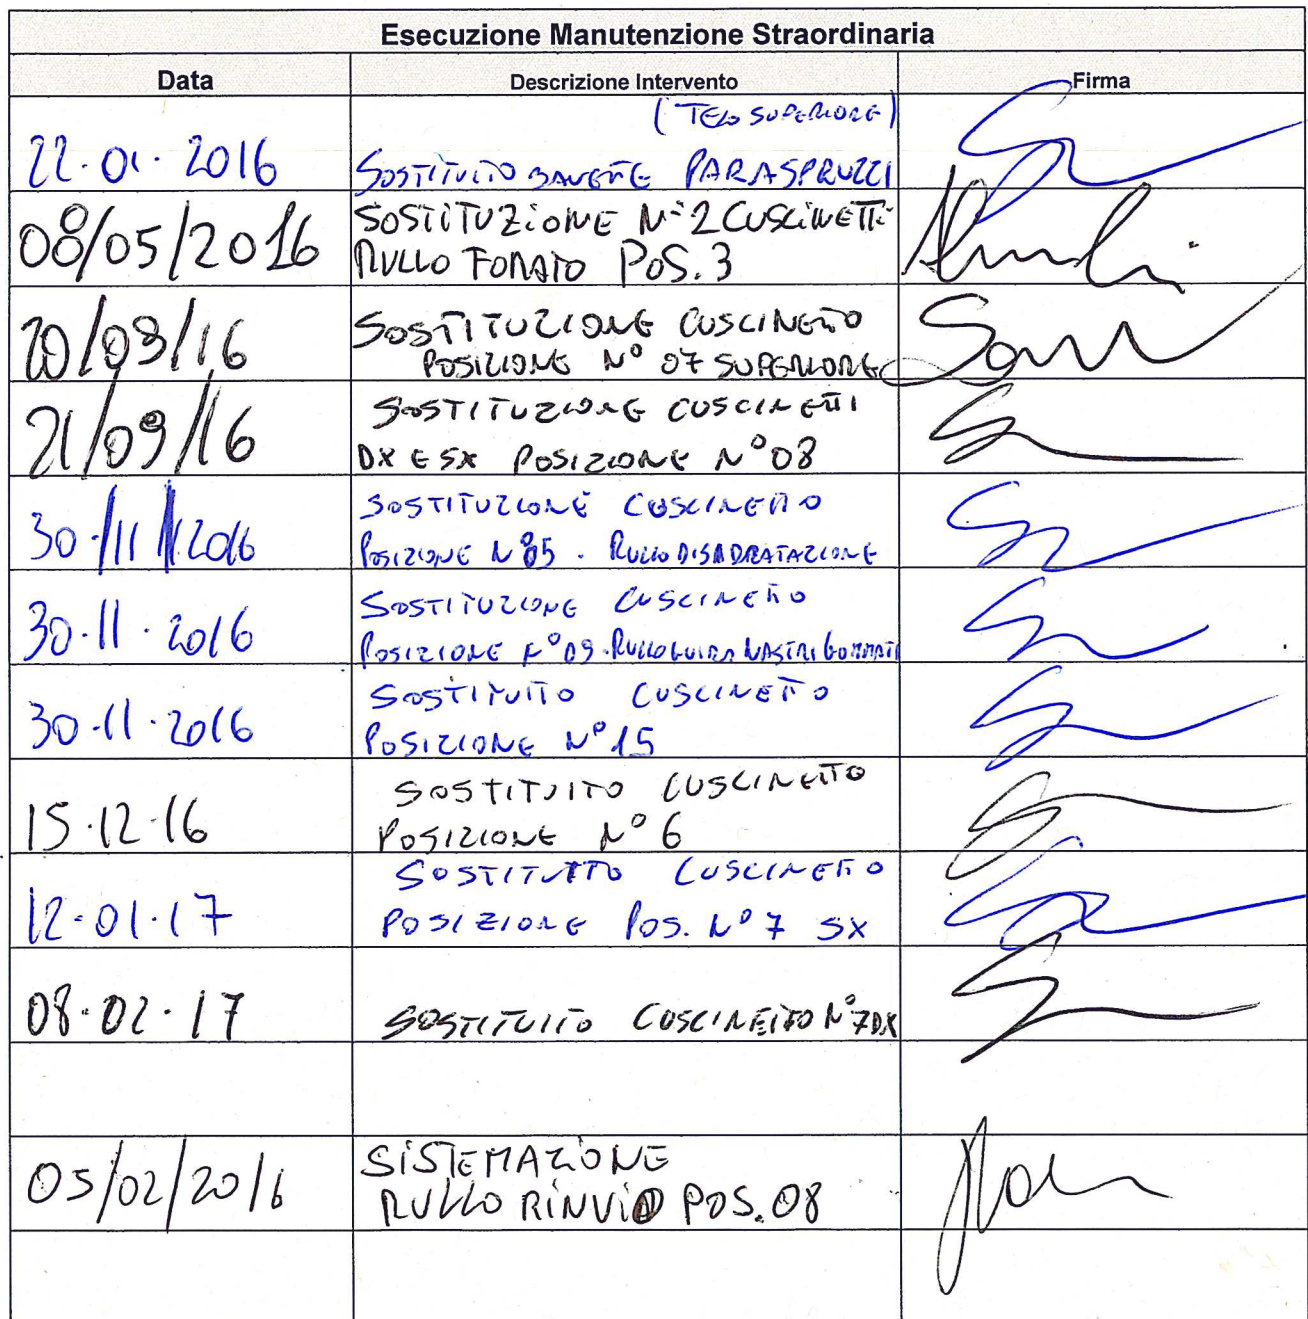 Esecuzione Manutenzione Straordinaria
Data Descrizione Intervento Firma
(TELO SUPERIORE)
22.01.2016 SOSTITUITO BAVETTE PARASPRUZZI
08/05/2016 SOSTITUZIONE N°2 CUSCINETTI
RULLO FORATO POS.3
20/09/16 SOSTITUZIONE CUSCINETTO
POSIZIONE N° 07 SUPERIORE
21/09/16 SOSTITUZIONE CUSCINETTI
DX E SX POSIZIONE N°08
30/11/2016 SOSTITUZIONE CUSCINETTO
POSIZIONE N°05 - RULLO DISADRATAZIONE
30.11.2016 SOSTITUZIONE CUSCINETTO
POSIZIONE N°09-RULLO GUIDA NASTRI GOMMATI
30.11.2016 SOSTITUITO CUSCINETTO
POSIZIONE N°15
15.12.16 SOSTITUITO CUSCINETTO
POSIZIONE N°6
12.01.17 SOSTITUITO CUSCINETTO
POSIZIONE POS. N°7 SX
08.02.17 SOSTITUITO CUSCINETTO N°7DX
05/02/2016 SISTEMAZIONE
RULLO RINVIO POS.08